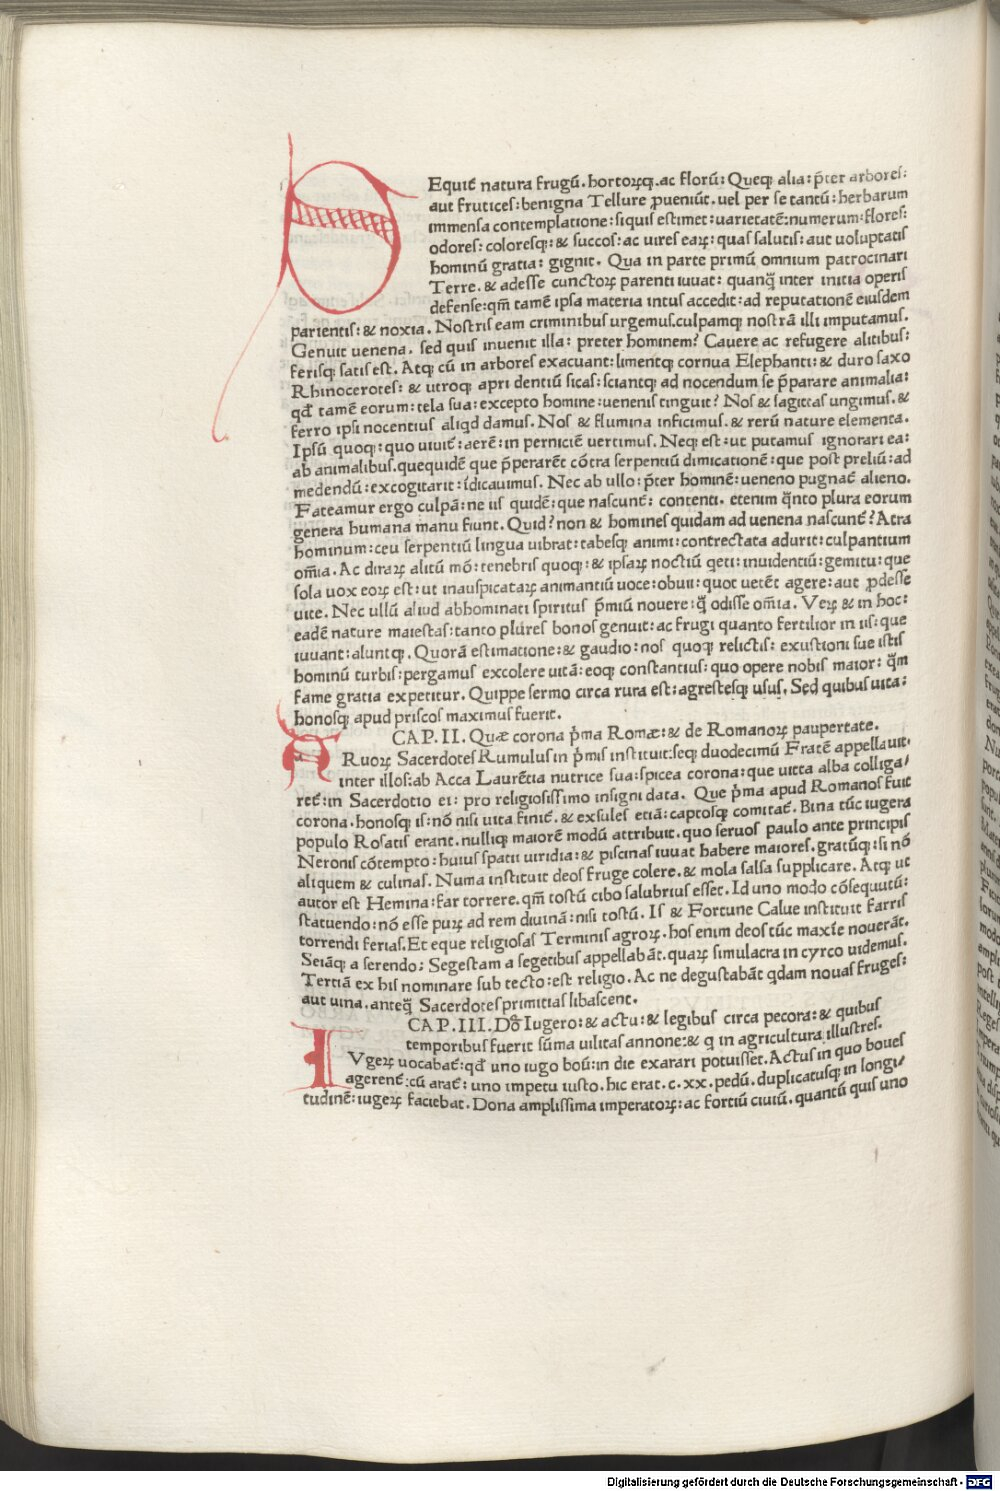 SEquit̃ natura frugũ. hortoꝝꝗ. ac florũ: Queꝗ alia: p̃ter arbores:
aut frutices: benigna Tellure ꝓueniũt. uel per se tantũ: herbarum
immensa contemplatione: siquis estimet: uarietatẽ: numerum: flores:
odores: coloresꝗ: & succos: ac uires eaꝝ: quas salutis: aut uoluptatis
hominũ gratia: gignit. Qua in parte primũ omnium patrocinari
Terre. & adesse cunctoꝝ parenti iuuat: quanq̃ inter initia operis
defense: qm̃ tamẽ ipsa materia intus accedit: ad reputationẽ eiusdem
parientis: & noxia. Nostris eam criminibus urgemus. culpamꝗ nostrã illi imputamus.
Genuit uenena. sed quis inuenit illa: preter hominem? Cauere ac refugere alitibus:
ferisꝗ satis est. Atꝗ cũ in arbores exacuant: limentꝗ cornua Elephanti: & duro saxo
Rhinocerotes: & utroꝗ apri dentiũ sicas: sciantꝗ ad nocendum se p̃parare animalia:
qd̃ tamẽ eorum: tela sua: excepto homine: uenenis tinguit? Nos & sagittas ungimus. &
ferro ipsi nocentius aliqd damus. Nos & flumina inficimus. & rerũ nature elementa.
Ipsũ quoꝗ: quo uiuit̃: aerẽ: in perniciẽ uertimus. Neꝗ est: ut putamus ignorari ea:
ab animalibus. quequidẽ que p̃perarẽt cõtra serpentiũ dimicationẽ: que post preliũ: ad
medendũ: excogitarit: ĩdicauimus. Nec ab ullo: p̃ter hominẽ: ueneno pugnat̃ alieno.
Fateamur ergo culpã: ne iis quidẽ: que nascunt̃: contenti. etenim q̃nto plura eorum
genera humana manu fiunt. Quid? non & homines quidam ad uenena nascunt̃? Atra
hominum: ceu serpentiũ lingua uibrat: tabesꝗ animi: contrectata adurit: culpantium
om̃ia. Ac diraꝝ alitũ mõ: tenebris quoꝗ: & ipsaꝝ noctiũ qeti: inuidentiũ: gemitu: que
sola uox eoꝝ est: ut inauspicataꝝ animantiũ uoce: obuii: quot uetẽt agere: aut ꝓdesse
uite. Nec ullũ aliud abhominati spiritus p̃miũ nouere: q̃ odisse om̃ia. Veꝝ & in hoc:
eadẽ nature maiestas: tanto plures bonos genuit: ac frugi quanto fertilior in iis: que
iuuant: aluntꝗ. Quorã estimatione: & gaudio: nos quoꝗ relictis: exustioni sue istis
hominũ turbis: pergamus excolere uitã: eoꝗ constantius: quo opere nobis maior: q̃m
fame gratia expetitur. Quippe sermo circa rura est: agrestesꝗ usus. Sed quibus uita:
honosꝗ apud priscos maximus fuerit.
CAP. II. Quæ corona p̃ma Romæ: & de Romanoꝝ paupertate.
ARuoꝝ Sacerdotes Rumulus in p̃mis instituit: seꝗ duodecimũ Fratẽ appellauit:
inter illos: ab Acca Laurẽtia nutrice sua: spicea corona: que uitta alba colliga/
ret̃: in Sacerdotio ei: pro religiosissimo insigni data. Que p̃ma apud Romanos fuit
corona. honosꝗ is: nõ nisi uita finit̃. & exsules etiã: captosꝗ comitat̃. Bina tũc iugera
populo Rosatis erant. nulliꝗ maiorẽ modũ attribuit. quo seruos paulo ante principis
Neronis cõtempto: huius spatii uiridia: & piscinas iuuat habere maiores. gratũꝗ: si nõ
aliquem & culinas. Numa instituit deos fruge colere. & mola salsa supplicare. Atꝗ ut
autor est Hemina: far torrere. qm̃ tostũ cibo salubrius esset. Id uno modo cõsequutũ:
statuendo: nõ esse puꝝ ad rem diuinã: nisi tostũ. Is & Fortune Calue instituit farris
torrendi ferias. Et eque religiosas Terminis agroꝝ. hos enim deos tũc maxĩe nouerãt.
Seiãꝗ a serendo; Segestam a segetibus appellabãt. quaꝝ simulacra in cyrco uidemus.
Tertiã ex his nominare sub tecto: est religio. Ac ne degustabãt qdam nouas fruges:
aut uina. anteq̃ Sacerdotes primitias libascent.
CAP. III. De Iugero: & actu: & legibus circa pecora: & quibus
temporibus fuerit sũma uilitas annone: & q in agricultura illustres.
IVgeꝝ uocabat̃: qd̃ uno iugo boũ: in die exarari potuisset. Actus in quo boues
agerent̃: cũ arat̃: uno impetu iusto. hic erat. c. xx. pedũ. duplicatusꝗ in longi/
tudinẽ: iugeꝝ faciebat. Dona amplissima imperatoꝝ: ac fortiũ ciuiũ. quantũ quis uno
Digitalisierung gefördert durch die Deutsche Forschungsgemeinschaft - DFG